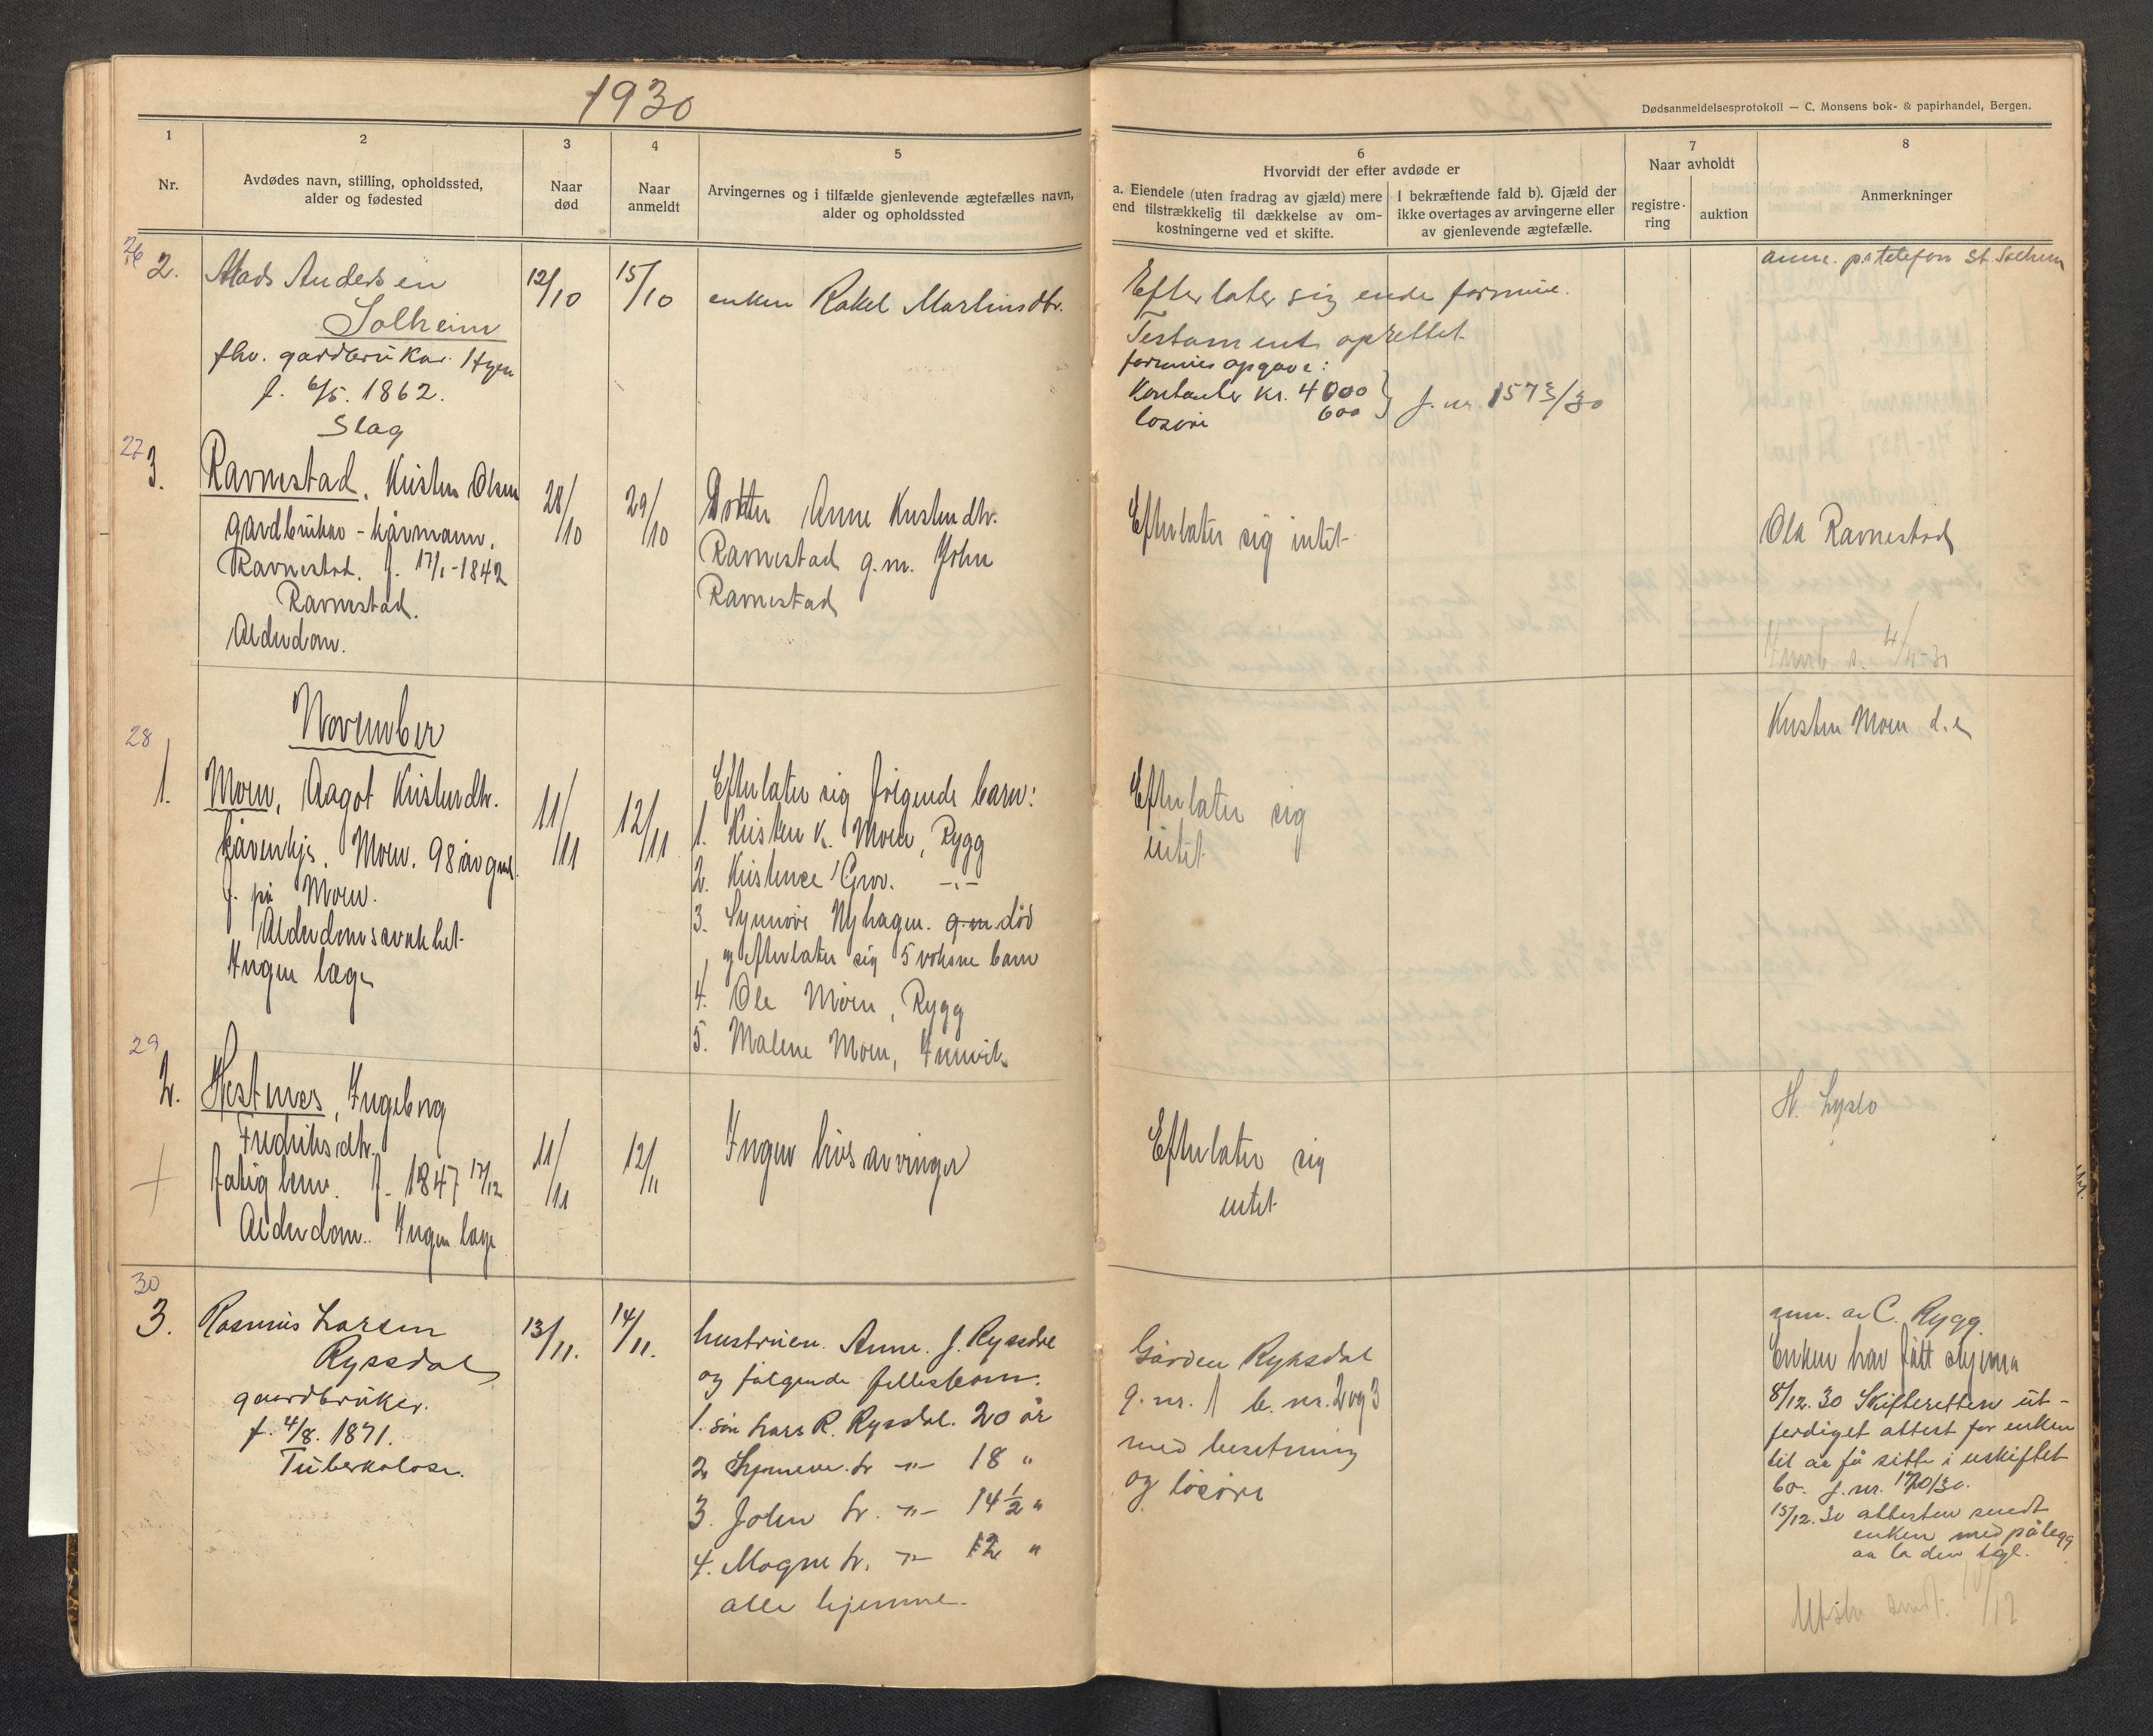 1930
Dødsanmeldelsesprotokoll — C. Monsens bok- & papirhandel, Bergen.
1
Nr.
2
Avdødes navn, stilling, opholdssted,
alder og fødested
3
Naar
død
4
Naar
anmeldt
5
Arvingernes og i tilfælde gjenlevende ægtefælles navn,
alder og opholdssted
6
Hvorvidt der efter avdøde er
a. Eiendele (uten fradrag av gjæld) mere
end tilstrækkelig til dækkelse av om-
kostningerne ved et skifte.
I bekræftende fald b). Gjæld der
ikke overtages av arvingerne eller
av gjenlevende ægtefælle.
7
Naar avholdt
registre-
ring
auktion
8
Anmerkninger
26
2.
Mads Andersen
Solheim
fhv. gardbruker Hyen
f. 6/5. 1862.
Slag
12/10
15/10
enken Rakel Martinsdtr.
Efterlater sig ende formue.
Testament oprettet
formues opgave:
Kontanter kr. 4000
losøre 600 } j. nr. 1573/30
anm. pr telefon St. Solheim
27
3.
Ravnestad, Kristen Olsen
gardbruker - kårmann.
Ravnestad. f. 17/1-1842
Ravnestad.
Alderdom.
28/10
29/10
Dotter Anne Kristendtr.
Ravnestad g.m. John
Ravnestad
Efterlater sig intet
Ola Ravnestad
4/11-30
November
28
1.
Moen, Aagot Kristendtr.
kårenkje. Moen. 98 år gml.
f. på Moen.
Alderdomssvakhet
Ingen læge
11/11
12/11
Efterlater sig følgende barn:
1. Kristen K. Moen, Rygg
2. Kristence Grov. -"-
3. Synnøve Nyhagen. g.m. død
og efterlater sig 5 voksne barn
4. Ole Moen, Rygg
5. Malene Moen, Innvik
Efterlater sig
intet
Kristen Moen d.e
29
2.
Hestnes, Ingeborg
Fredriksdtr.
fatig lem. f. 1847 17/12
Alderdom. Ingen læge
11/11
12/11
Ingen livsarvinger
Efterlater sig
intet
H. Lyslo
30
3.
Rasmus Larsen
Ryssdal
gaardbruker.
f. 4/8. 1871.
Tuberkolose.
13/11.
14/11.
hustruen Anne. J. Ryssdal
og følgende fellesbarn.
1. søn Lars R. Ryssdal. 20 år
2 Synneve. Sr -"- 18 "
3. John Sr. -"- 14 1/2 "
4. Mogne Sr. -"- 12 "
alle hjemme.
Gården Ryssdal
g. nr. 1 b. nr. 2 og 3
med besetning
og løsøre
anm. av C. Rygg.
Enken har fått skjema
8/12.30 Skifteretten ut-
ferdiget attest for enken
til aa få sitte i uskiftet
bo. j. nr. 1720/30.
15/12.30 attesten sendt
enken med pålegg
aa la den tgl.